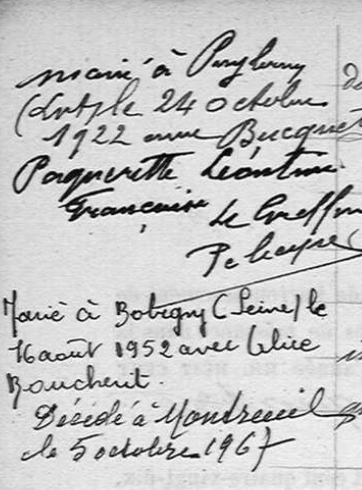 marié à Puy
(Lot) le 24 octobre
1922 avec Bucquet
Paquerette Léontine
Françoise Le Greffier
Marié à Bobigny (Seine) le
16 août 1952 avec Alice
Boucherit.
Décédé à Montreuil
le 5 octobre 1967